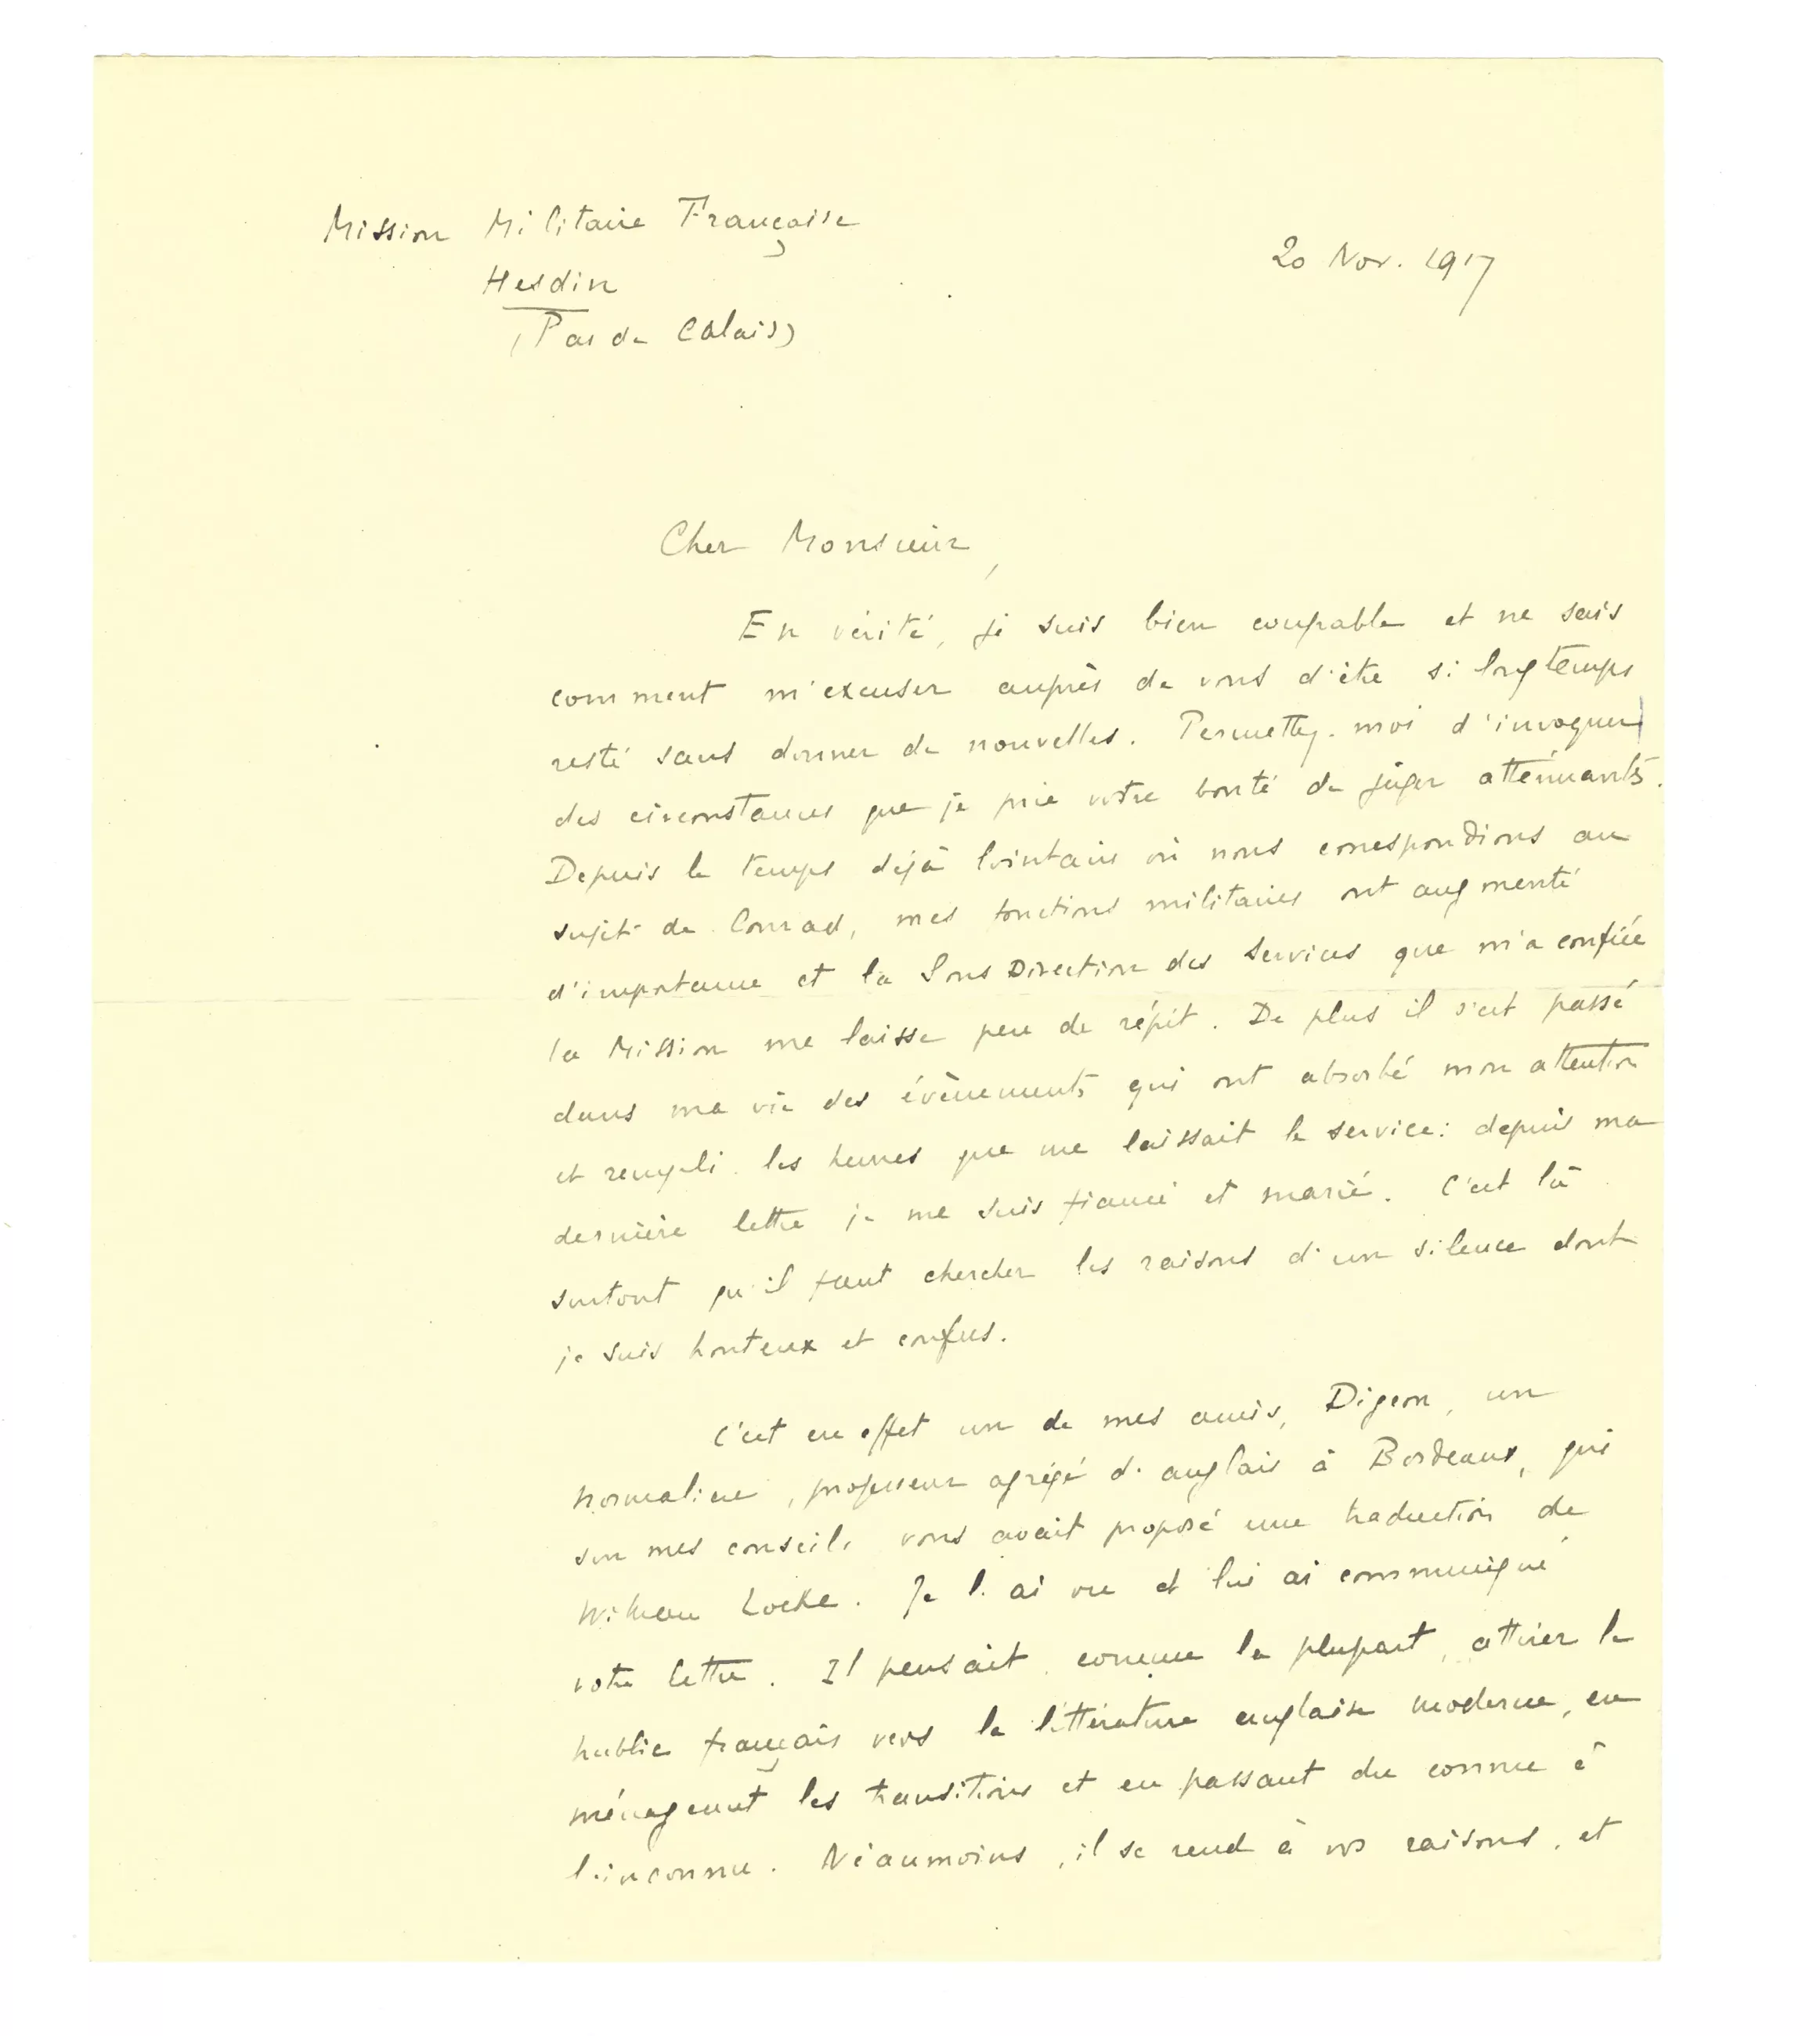 Mission Militaire Française
Hesdin
(Pas de Calais)
20 Nov. 1917
Cher Monsieur,
En vérité, je suis bien coupable et ne sais
comment m'excuser auprès de vous d'être si longtemps
resté sans donner de nouvelles. Permettez-moi d'invoquer
des circonstances que je prie votre bonté de juger atténuants.
Depuis le temps déjà lointain où nous correspondions au
sujet de Conrad, mes fonctions militaires ont augmenté
d'importance et la Sous Direction des Services que m'a confiée
la Mission me laisse peu de répit. De plus il s'est passé
dans ma vie des évènements qui ont absorbé mon attention
et rempli les heures que me laissait le service: depuis ma
dernière lettre je me suis fiancé et marié. C'est là
surtout qu'il faut chercher les raisons d'un silence dont
je suis honteux et confus.
C'est en effet un de mes amis, Digeon, un
normalien, professeur agrégé d'anglais à Bordeaux, qui
sur mes conseils vous avait proposé une traduction de
William Locke. Je l'ai vu et lui ai communiqué
votre lettre. Il pensait, comme la plupart, attirer le
public français vers la littérature anglaise moderne, en
ménageant les transitions et en passant du connu à
l'inconnu. Néaumoins, il se rend à vos raisons, et